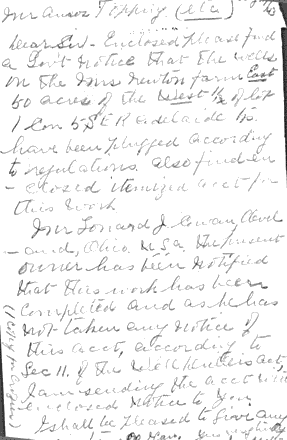 Mr Anson Topping. (Clk)
Dear Sir - Enclosed please find
a Gov't Notice that the wells
on the Mrs Newton farm East
50 acres of the West ½ of lot
1 Con 5 S E R Adelaide Tp.
have been plugged according
to regulations. also find en
- closed itemized acct for
this work
Mr Leonard J. Cowan, Clevel
- and, Ohio. U S a. the present
owner has been notified
that this work has been
completed and as he has
not taken any notice of
this acct, according to
Sec 11. of the Well Drillers act,
I am sending the acct with
enclosed notice to you
I shall be pleased to give any